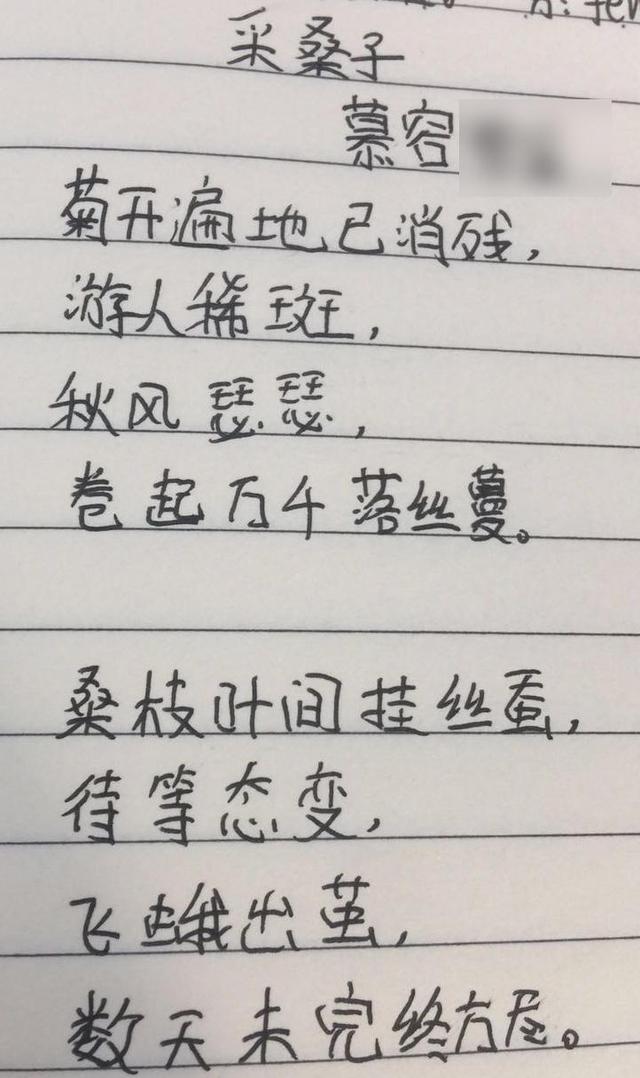 采桑子
慕容
菊开遍地已消残，
游人稀斑，
秋风瑟瑟，
卷起万千落丝蔓。
桑枝叶间挂丝蚕，
待等态变，
飞蛾出茧，
数天未完终方尽。